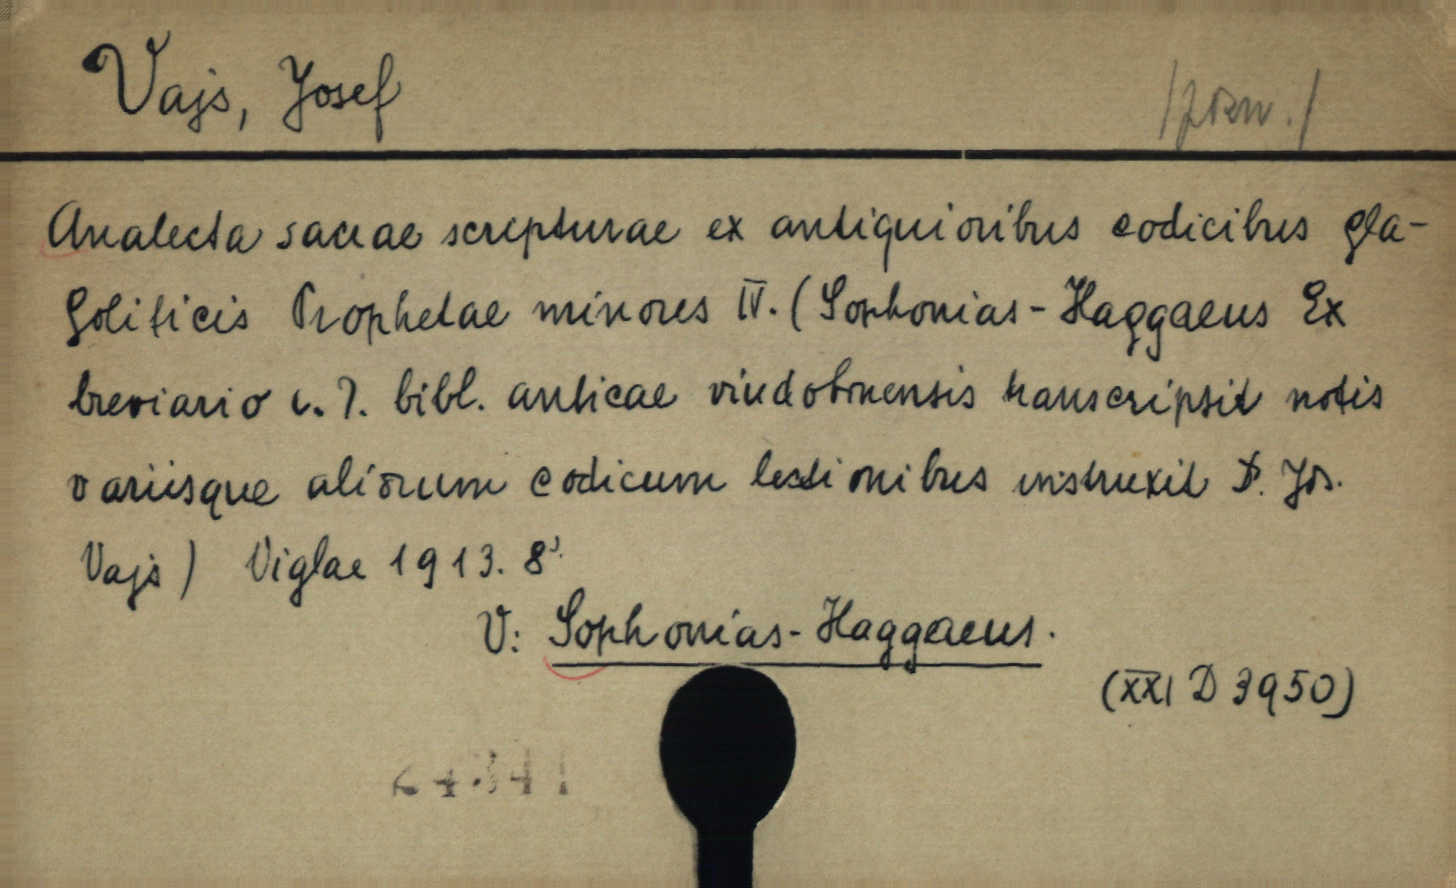 Vajs, Josef
Analecta sacrae scripturae ex antiquioribus codicibus gla-
goliticis Prophetae minores IV. (Sophonias-Haggaeus Ex
breviario bibl. aulicae vindobonensis transcripsit notis
variisque aliorum codicum lectionibus instruxit D. Jos.
Vajs) Viglae 1913. 8°.
V: Sophonias-Haggaeus.
(XXI D 3950)